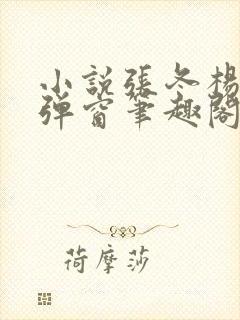 小説張冬楊
弹窗筆趣閣
荷摩莎